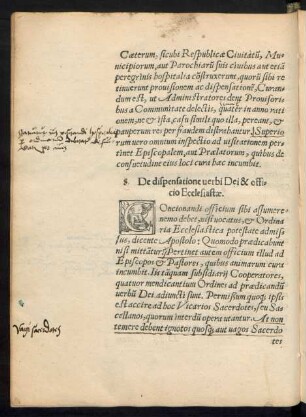 Cæterum, sicubi Respublicæ Ciuitatũ, Mu-
nicipiorum, aut Parochiarũ suis ciuibus aut etiã
peregrinis hospitalia cõstruxerunt, quorũ sibi re
tinuerunt prouisionem ac dispensationẽ, Curan-
dum est, ut Administratores seu Prouisores
bus a Communitate delectis, quater in anno rati
onem, ne & ista, casu simile quo illa, pereant, &
pauperum res per fraudem distrahantur. Superio
rum uero omnium inspectio ad uisitationem perti-
net Episcopalem, aut Prælatorum, quibus de
consuetudine eius loci cura hæc incumbit.
8. De dispensatione uerbi Dei & offi-
cio Ecclesiastæ.
COncionandi officium sibi assumere
nemo debet, nisi uocatus, & Ordina
ria Ecclesiastica potestate admis
sus, dicente Apostolo: Quomodo prædicabunt
nisi mittãtur? Pertinet autem officium illud ad
Episcopos & Pastores, quibus animarum cura
incumbit. Iis tãquam subsidiarij Cooperatores,
quatuor mendicantium Ordines ad prædicandũ
uerbũ Dei adiuncti sunt. Permissum quoq; ipsi
est accire ad hoc Vicarios Sacerdotes, seu Sa
cellanos, quorum interdũ opere utantur. At non
temere debent ignotos quosq; aut uagos Sacerdo
tes
Vagi sacerdotes